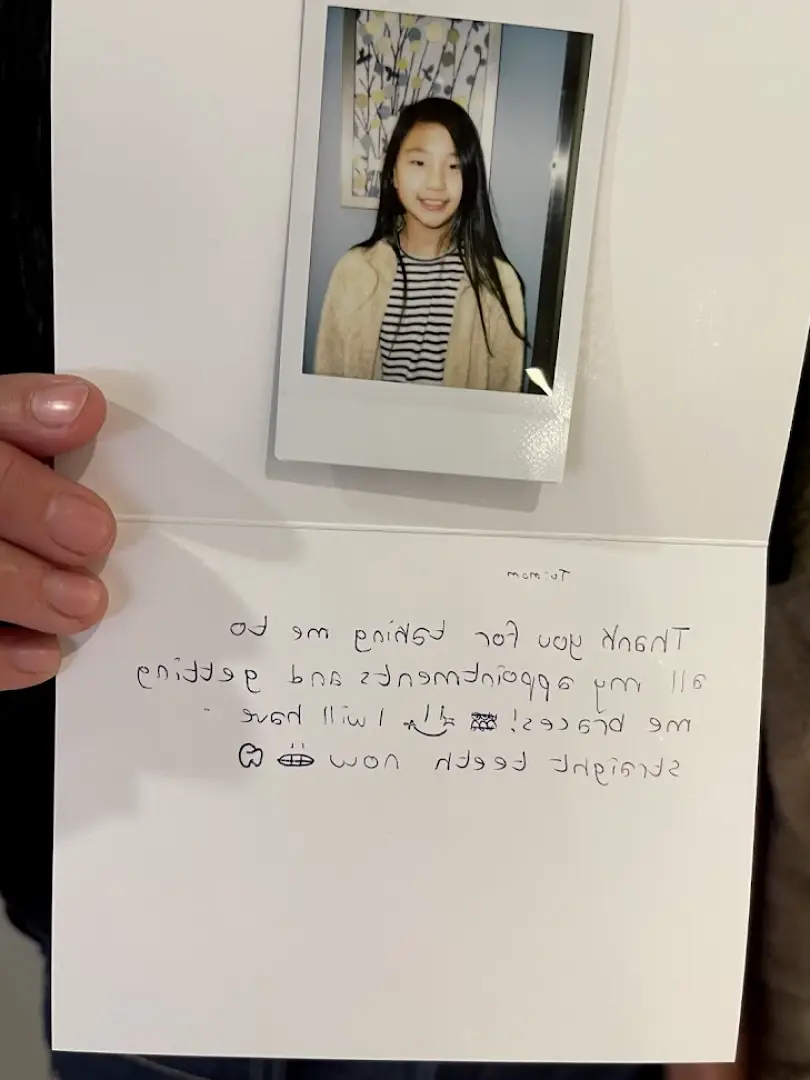 To: mom
Thank you for taking me to
all my appointments and getting
me braces! I will have
straight teeth now